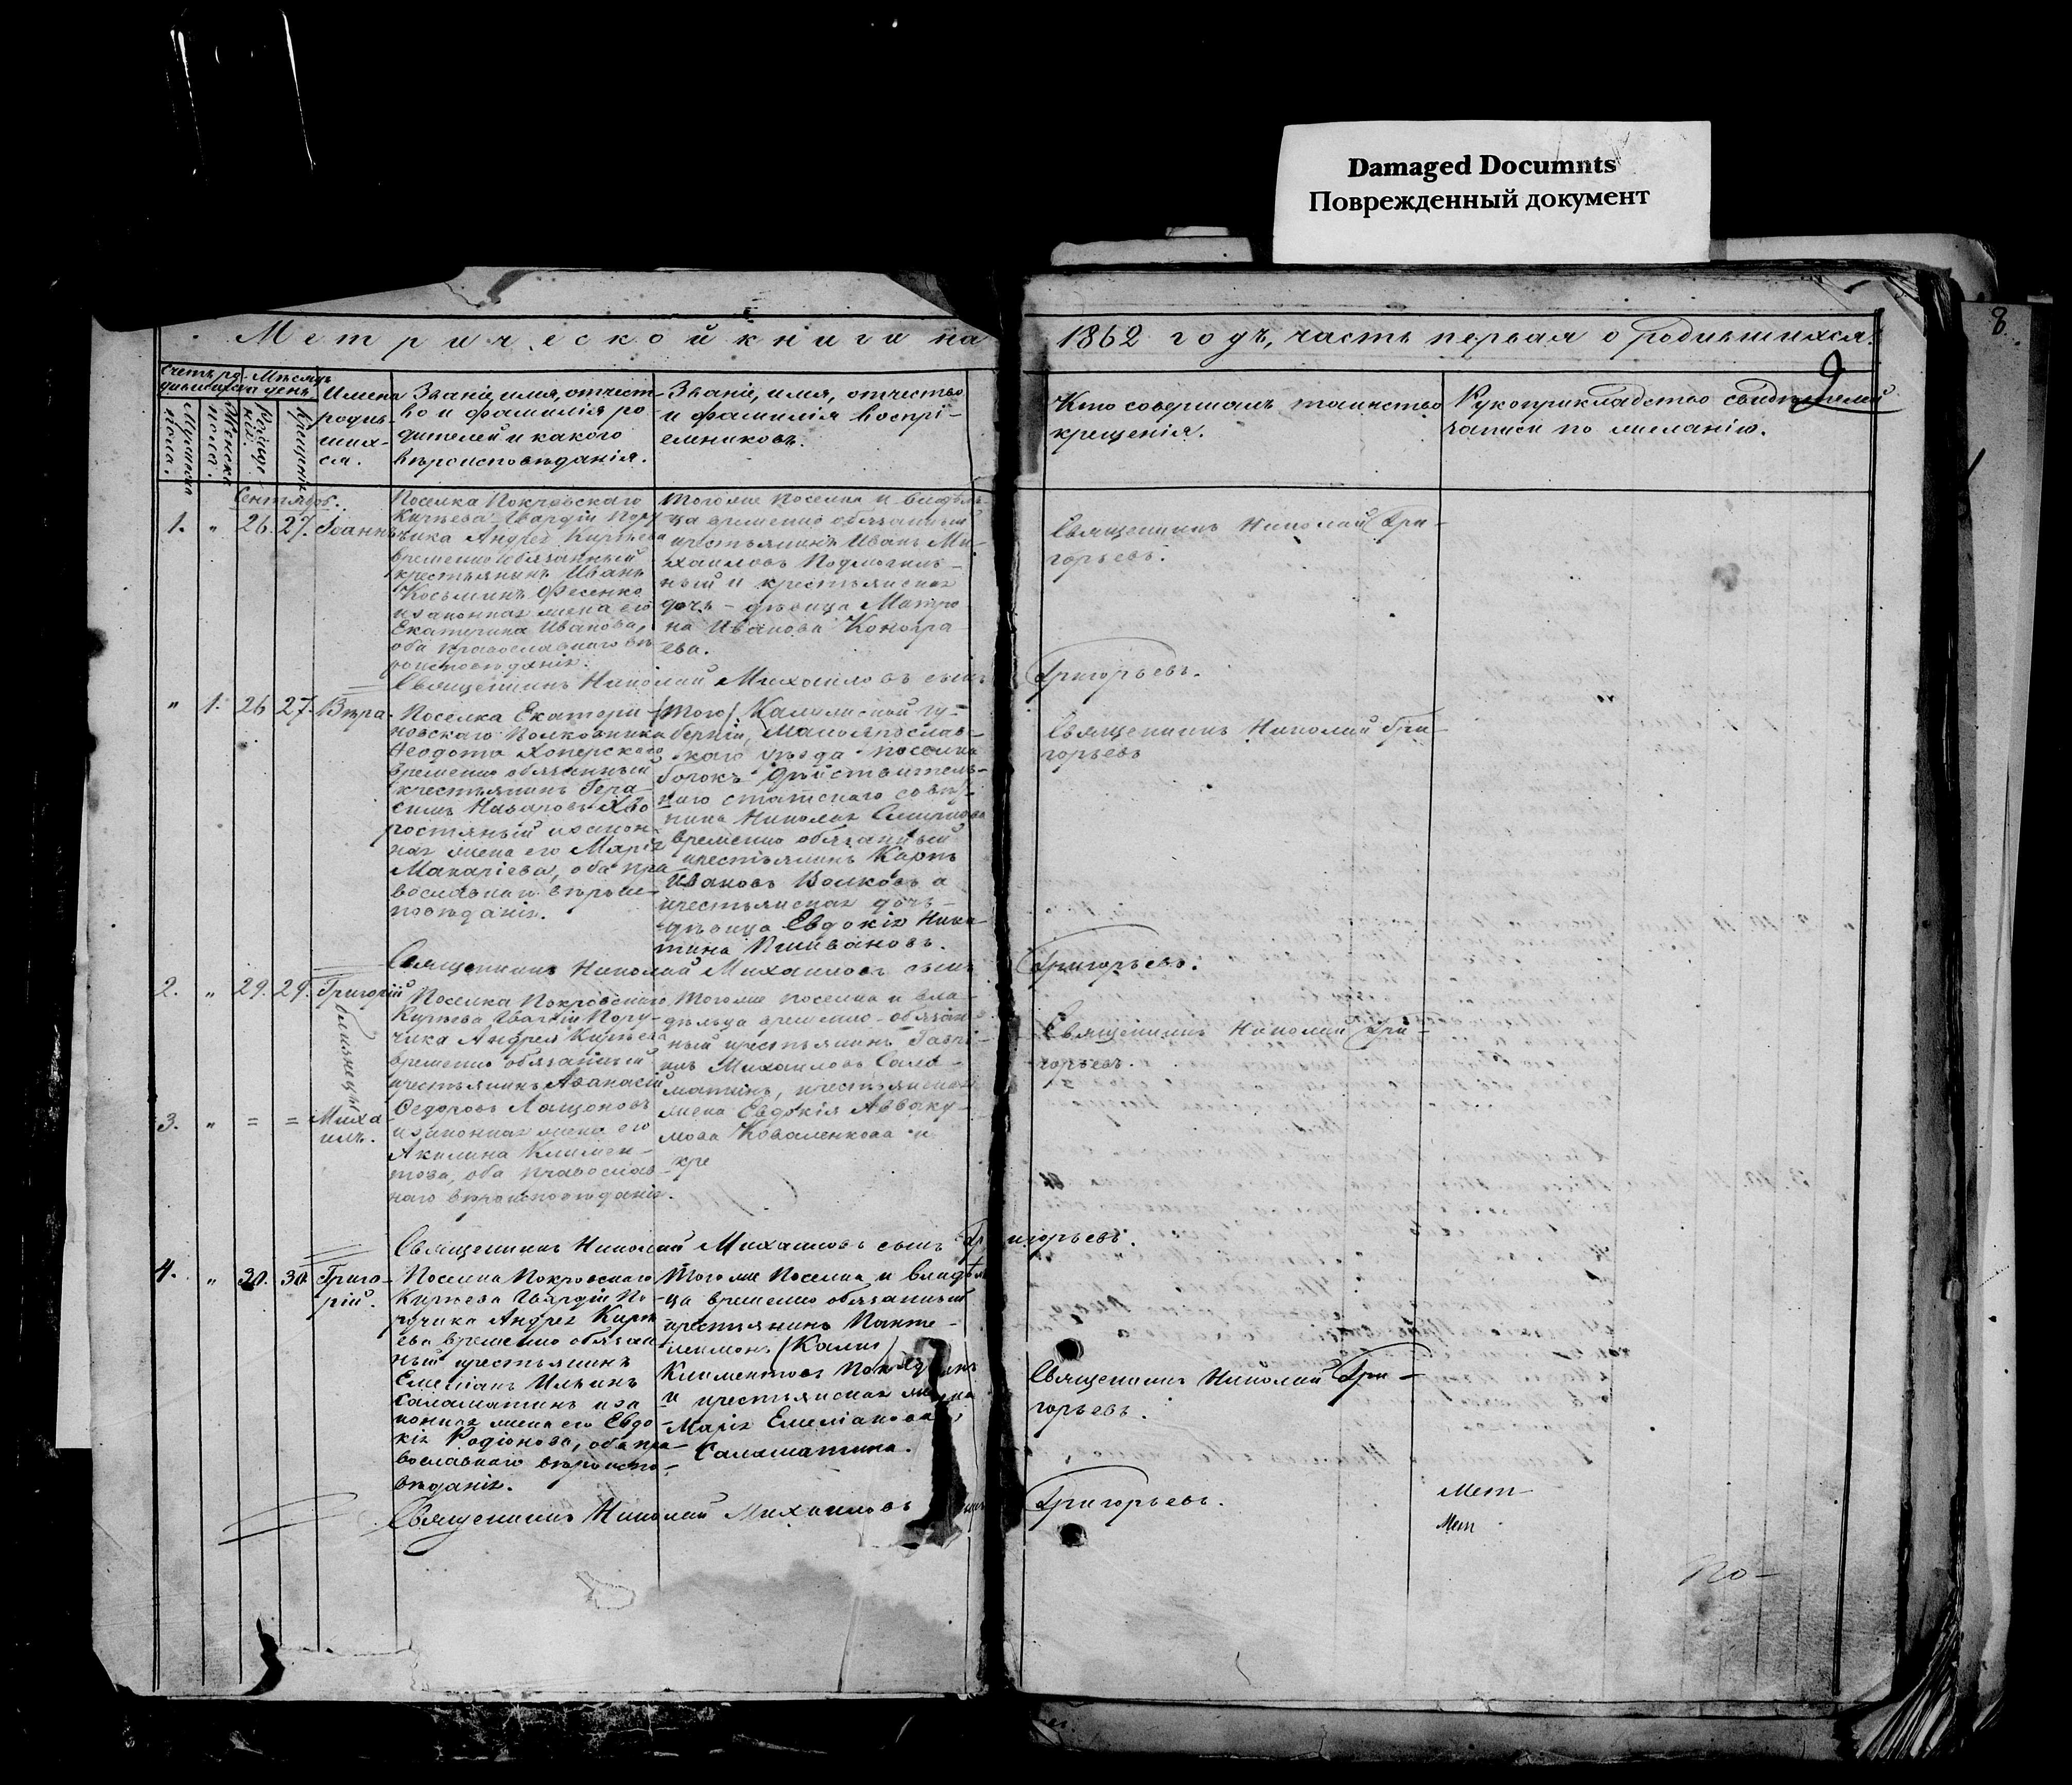 Damaged Documnts
Поврежденный документ
8.
Метрической книги на 1862 годъ, часть первая о родившихся.
2
Счетъ ро-
дившихся
Мѣсяцъ
и день
Мужеска
пола.
Женска
пола.
Рожде-
нія.
Крещенія
Имена
родив-
ших-
ся.
Званіе, имя, отчест-
во и фамилія ро-
дителей и какого
вѣроисповѣданія.
Званіе, имя, отчество
и фамилія воспрі-
емниковъ.
Кто совершалъ таинство
крещенія.
Рукоприкладство свидѣтелей
записи по желанію.
Сентябр.
1. " 26. 27. Іоаннъ
Поселка Покровскаго
Кирѣева Гвардіи Пору-
чика Андрея Кирѣева
временно обязанный
крестьянинъ Иванъ
Косьминъ Фесенко
и законная жена его
Екатерина Иванова,
оба православнаго вѣ-
роисповѣданія.
Тогоже поселка и владѣль-
ца временно обязанный
крестьянинъ Иванъ Ми-
хаиловъ Подмогиль-
ный и крестьянская
дочь - дѣвица Матро
на Иванова Коногра
ева.
Священникъ Николай Гри-
горьевъ.
Священникъ Николай Михаиловъ сынъ Григорьевъ.
" 1. 26 27. Вѣра.
Поселка Екатери-
новскаго Полковника
Ѳеодота Хоперскаго
временно обязанный
крестьянинъ Гера-
симъ Назаровъ Хво
ростяный и закон-
ная жена его Марія
Макаріева, оба пра-
вославнаго вѣроис-
повѣданія.
(Того) Калужской гу-
берніи, Малоярослав-
скаго уѣзда поселка
дѣйствитель-
наго статскаго совѣт-
ника Николая Смирнова
временно обязанный
крестьянинъ Карпъ
Ивановъ Волковъ а
крестьянская дочь-
дѣвица Евдокія Ники-
тина
Священникъ Николай Гри-
горьевъ
Священникъ Николай Михаиловъ сынъ Григорьевъ.
2. " 29. 29. Григорій
близнецы
3. " = = Миха
илъ.
Поселка Покровскаго
Кирѣева Гвардіи Пору-
чика Андрея Кирѣева
временно обязанный
крестьянинъ Аѳанасій
Ѳедоровъ Лащоновъ
и законная жена его
Акилина Климен-
това, оба православ-
наго вѣроисповѣданія.
Тогоже поселка и вла-
дѣльца временно-обязан-
ный крестьянинъ Гаврі-
илъ Михаиловъ Сала-
матинъ, крестьянская
жена Евдокія Авваку-
мова Коваленкова и
кре
Священникъ Николай Гри-
горьевъ.
Священникъ Николай Михаиловъ сынъ Григорьевъ.
4. " 30. 30. Григо-
рій.
Поселка Покровскаго
Кирѣева Гвардіи По-
ручика Андрея Кирѣ
ева временно обязан
ный крестьянинъ
Емеліанъ Ильинъ
Саламатинъ и за
конная жена его Евдо-
кія Родіонова, оба пра-
вославнаго вѣроиспо-
вѣданія.
Тогоже Поселка и владѣль
ца временно обязанный
крестьянинъ Панте-
леимонъ
Климентовъ
и крестьянская жена
Марія Емеліанова,
Саламатина.
Священникъ Николай Гри-
горьевъ.
Священникъ Николай Михаиловъ сынъ Григорьевъ.
Мет
Мет
По-